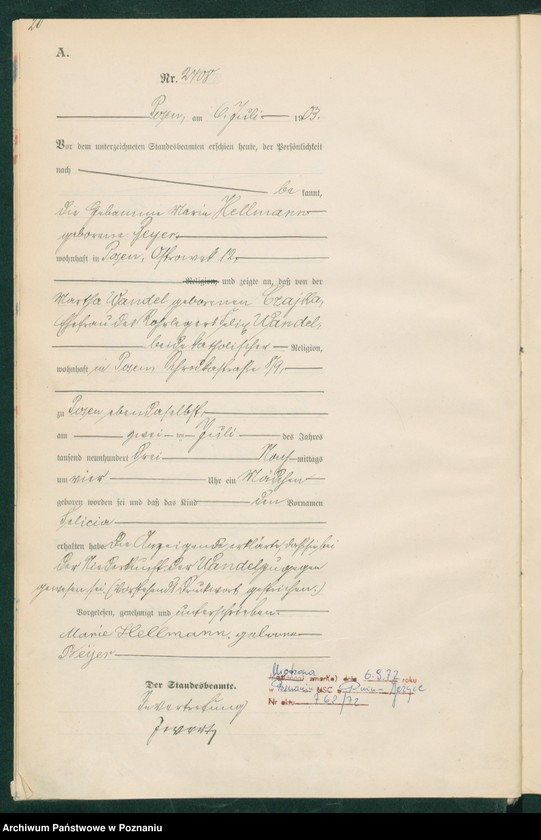 A.
Nr. 2708
Posen, am 6. Juli 1903.
Vor dem unterzeichneten Standesbeamten erschien heute, der Persönlichkeit
nach
be kannt,
die Hebamme Marie Hellmann
geborene
wohnhaft in Posen, Ostrowek 12,
Religion, und zeigte an, daß von der
Martha Wandel geborenen Czajka,
Ehefrau des Rohrlegers Felix Wandel,
beide katholischer Religion,
wohnhaft in Posen, Schrodkastraße 8/9,
zu Posen ebendaselbst,
am zwei ten Juli des Jahres
tausend neunhundert drei Nach mittags
um vier Uhr ein Mädchen
geboren worden sei und daß das Kind den Vornamen
Felicia
erhalten habe. Die Anzeigende erklärte, daß sie bei
der Niederkunft der Wandel zugegen
gewesen sei. (Vorstehend 1 Druckwort gestrichen.)
Vorgelesen, genehmigt und unterschrieben.
Marie Hellmann, geborene
Der Standesbeamte.
In Vertretung
zmarł(a) dnia 6.9.72 roku
USC
Nr aktu 762/72
Archiwum Państwowe w Poznaniu